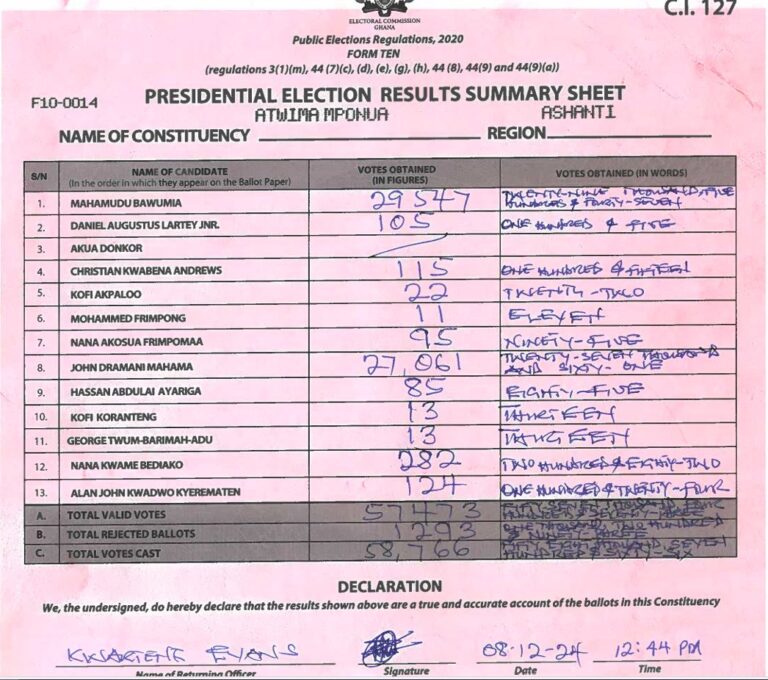 C.I. 127
ELECTORAL COMMISSION
GHANA
Public Elections Regulations, 2020
FORM TEN
(regulations 3(1)(m), 44 (7)(c), (d), (e), (g), (h), 44 (8), 44(9) and 44(9)(a))
F10-0014
PRESIDENTIAL ELECTION RESULTS SUMMARY SHEET
ATWIMA MPONUA ASHANTI
NAME OF CONSTITUENCY REGION
S/N NAME OF CANDIDATE (In the order in which they appear on the Ballot Paper) VOTES OBTAINED (IN FIGURES) VOTES OBTAINED (IN WORDS)
1. MAHAMUDU BAWUMIA 29547 TWENTY-NINE THOUSAND, FIVE HUNDRED & FOURTY-SEVEN
2. DANIEL AUGUSTUS LARTEY JNR. 105 ONE HUNDRED & FIVE
3. AKUA DONKOR
4. CHRISTIAN KWABENA ANDREWS 115 ONE HUNDRED & FIFTEEN
5. KOFI AKPALOO 22 TWENTY-TWO
6. MOHAMMED FRIMPONG 11 ELEVEN
7. NANA AKOSUA FRIMPOMAA 95 NINETY-FIVE
8. JOHN DRAMANI MAHAMA 27,061 TWENTY-SEVEN THOUSAND AND SIXTY-ONE
9. HASSAN ABDULAI AYARIGA 85 EIGHTY-FIVE
10. KOFI KORANTENG 13 THIRTEEN
11. GEORGE TWUM-BARIMAH-ADU 13 THIRTEEN
12. NANA KWAME BEDIAKO 282 TWO HUNDRED & EIGHTY-TWO
13. ALAN JOHN KWADWO KYEREMATEN 124 ONE HUNDRED & TWENTY-FOUR
A. TOTAL VALID VOTES 57473 FIFTY-SEVEN THOUSAND FOUR HUNDRED & SEVENTY-THREE
B. TOTAL REJECTED BALLOTS 1293 ONE THOUSAND, TWO HUNDRED & NINETY-THREE
C. TOTAL VOTES CAST 58,766 FIFTY-EIGHT THOUSAND SEVEN HUNDRED & SIXTY-SIX
DECLARATION
We, the undersigned, do hereby declare that the results shown above are a true and accurate account of the ballots in this Constituency
EVANS 08-12-24 12:44 PM
Name of Returning Officer Signature Date Time